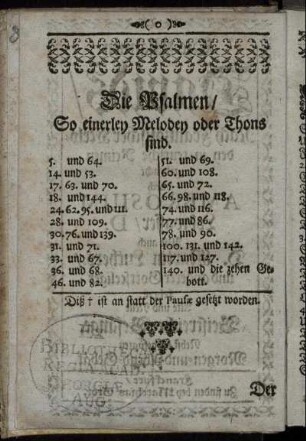 ( o )
Die Psalmen/
So einerley Melodey oder Thons
sind.
5. und 64.
14. und 53.
17. 63. und 70.
18. und 144.
24. 62. 95. und 111.
28. und 109.
30. 76. und 139.
31. und 71.
33. und 67.
36. und 68.
46. und 82.
51. und 69.
60. und 108.
65. und 72.
66. 98. und 118.
74. und 116.
77. und 86.
78. und 90.
100. 131. und 142.
117. und 147.
140. und die zehen Ge-
bott.
Diß † ist an statt der Pausæ gesetzt worden.
BIBLIOTH
REGIA
ACAD
GEORGIÆ
AUG
Der